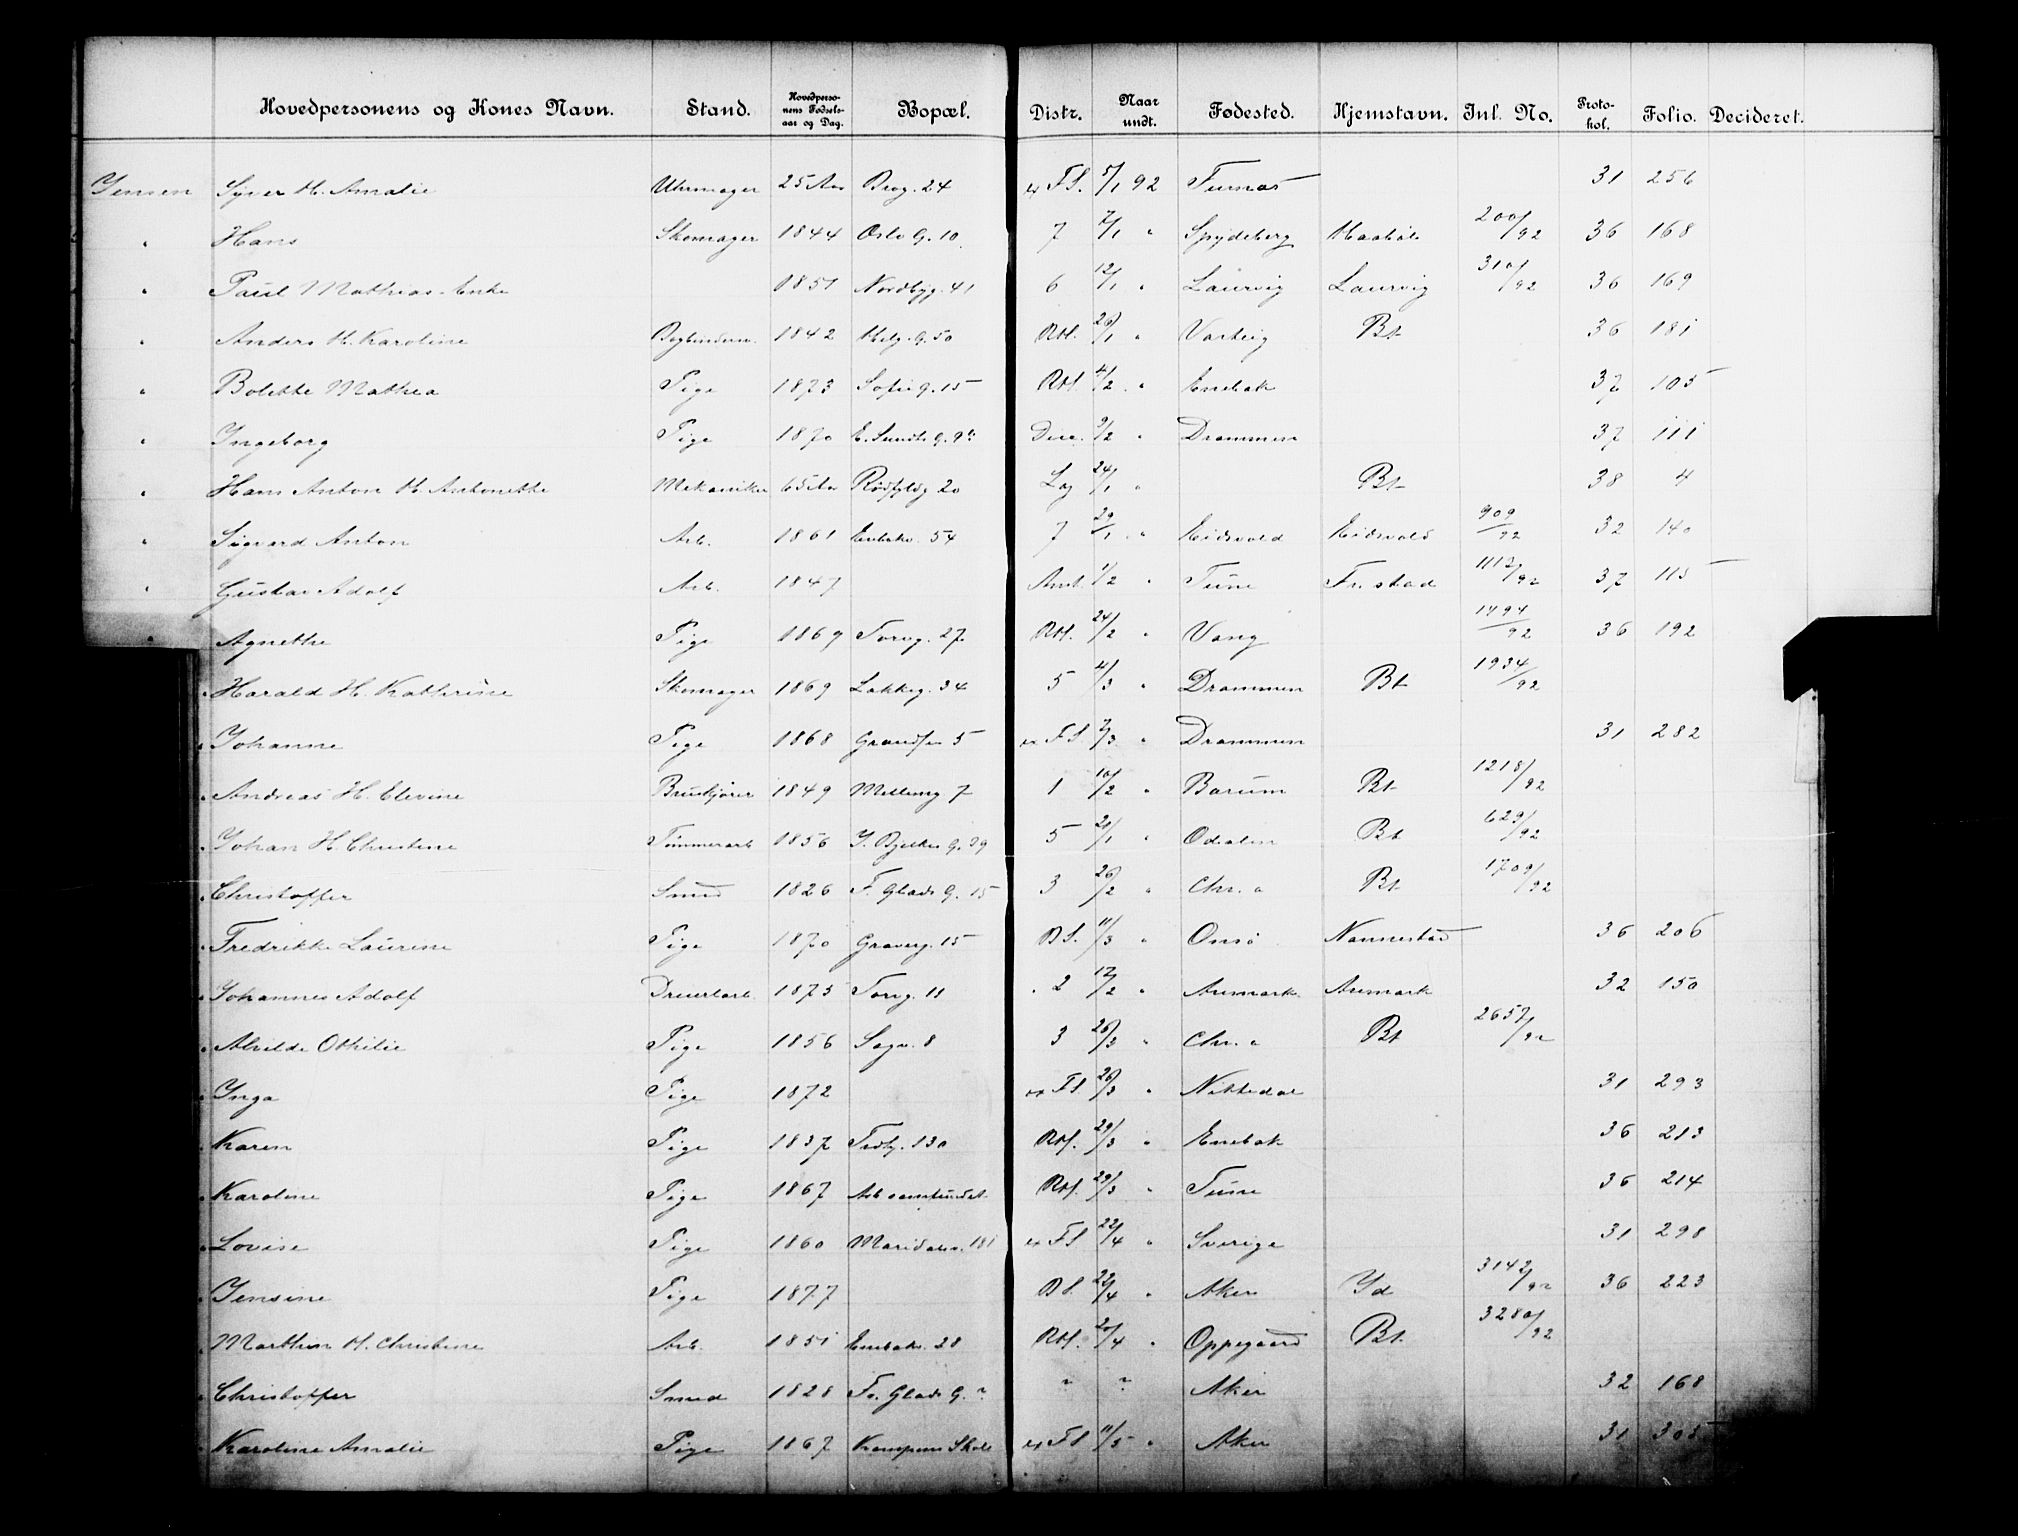 Hovedpersonens og Kones Navn. Stand. Hovedpersonens Fødselsaar og Dag. Bopæl. Distr. Naar undt. Fødested. Hjemstavn. Inl. No. Protokol. Folio. Decideret.
Jensen Syver H. Amalie Uhrmager 25 Aar Brog. 24 FS. 5/1 92 Furnæs 31 256
" Hans Skomager 1844 Oslo G. 10 7 7/1 " Spydeberg Haabøl 200/92 36 168
" Paul Mathias Enke 1851 Nordbyg. 41 6 12/1 " Laurvig Laurvig 310/92 36 169
" Anders H. Karoline Bogbinder 1842 Helg. G. 50 RH. 26/1 " Varteig Bt 36 181
" Bolette Mathea Pige 1873 Sofie G. 15 RH. 4/2 " Enebak 37 105
" Ingeborg Pige 1870 E. Sundts G. 9 Dice. 9/2 " Drammen 37 111
" Hans Anton H. Antonette Mekaniker 65 Aar Rødfyldg 20 Lag 24/1 " Bt 38 4
" Sigvard Anton Arb. 1861 Enebakv. 54 7 29/1 " Eidsvold Eidsvold 909/92 32 140
" Gustav Adolf Arb. 1847 Amt. 1/2 " Tune Fr. stad 1112/92 37 115
" Agnethe Pige 1869 Torvg. 27 RH. 24/2 " Vang 1494/92 36 192
" Harald H. Kathrine Skomager 1869 Lakkeg. 34 5 4/3 " Drammen Bt 1934/92
" Johanne Pige 1868 Grændsen 5 FS 7/3 " Drammen 31 282
" Andreas H. Elevine Bruskjører 1849 Mellemg 7 1 10/2 " Barum Bt 1218/92
" Johan H. Christine Tømmerarb 1856 J. Bjelkes G. 39 5 21/1 " Odalen Bt 629/92
" Christoffer Smed 1826 F. Glads G. 15 3 26/2 " Chr. a Bt 1709/92
" Fredrikke Laurene Pige 1870 Graverg. 15 BS. 11/3 " Onsø Nannestad 36 206
" Johannes Adolf Dreierlærl. 1875 Torvg. 11 2 17/2 " Aremark Aremark 32 150
" Alvilde Othilie Pige 1856 Sagv. 8 3 26/3 " Chr. a Bt 2657/92
" Inga Pige 1872 FS 26/3 " Nittedal 31 293
" Karen Pige 1837 Trdhj. 130 RH. 29/3 " Enebak 36 213
" Karoline Pige 1867 Arb samfundet RH. 29/3 " Tune 36 214
" Lovise Pige 1860 Maridalsv. 181 FS 22/4 " Sverige 31 298
" Jensine Pige 1877 BS. 22/4 " Aker Yd 3142/92 36 223
" Marthin H. Christine Arb. 1851 Enebakv. 28 RH. 20/4 " Oppegaard Bt 3280/92
" Christoffer Smed 1828 Fr. Glads G. ? ? ? Aker 32 168
" Karoline Amalie Pige 1867 Kampens Skole FS 11/5 " Aker 31 305